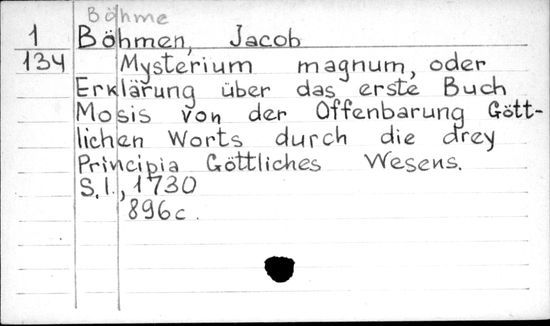 Böhme
1 Böhmen, Jacob
134 Mysterium magnum, oder
Erklärung über das erste Buch
Mosis von der Offenbarung Gött-
lichen Worts durch die drey
Principia Göttliches Wesens.
S.l., 1730
896c.